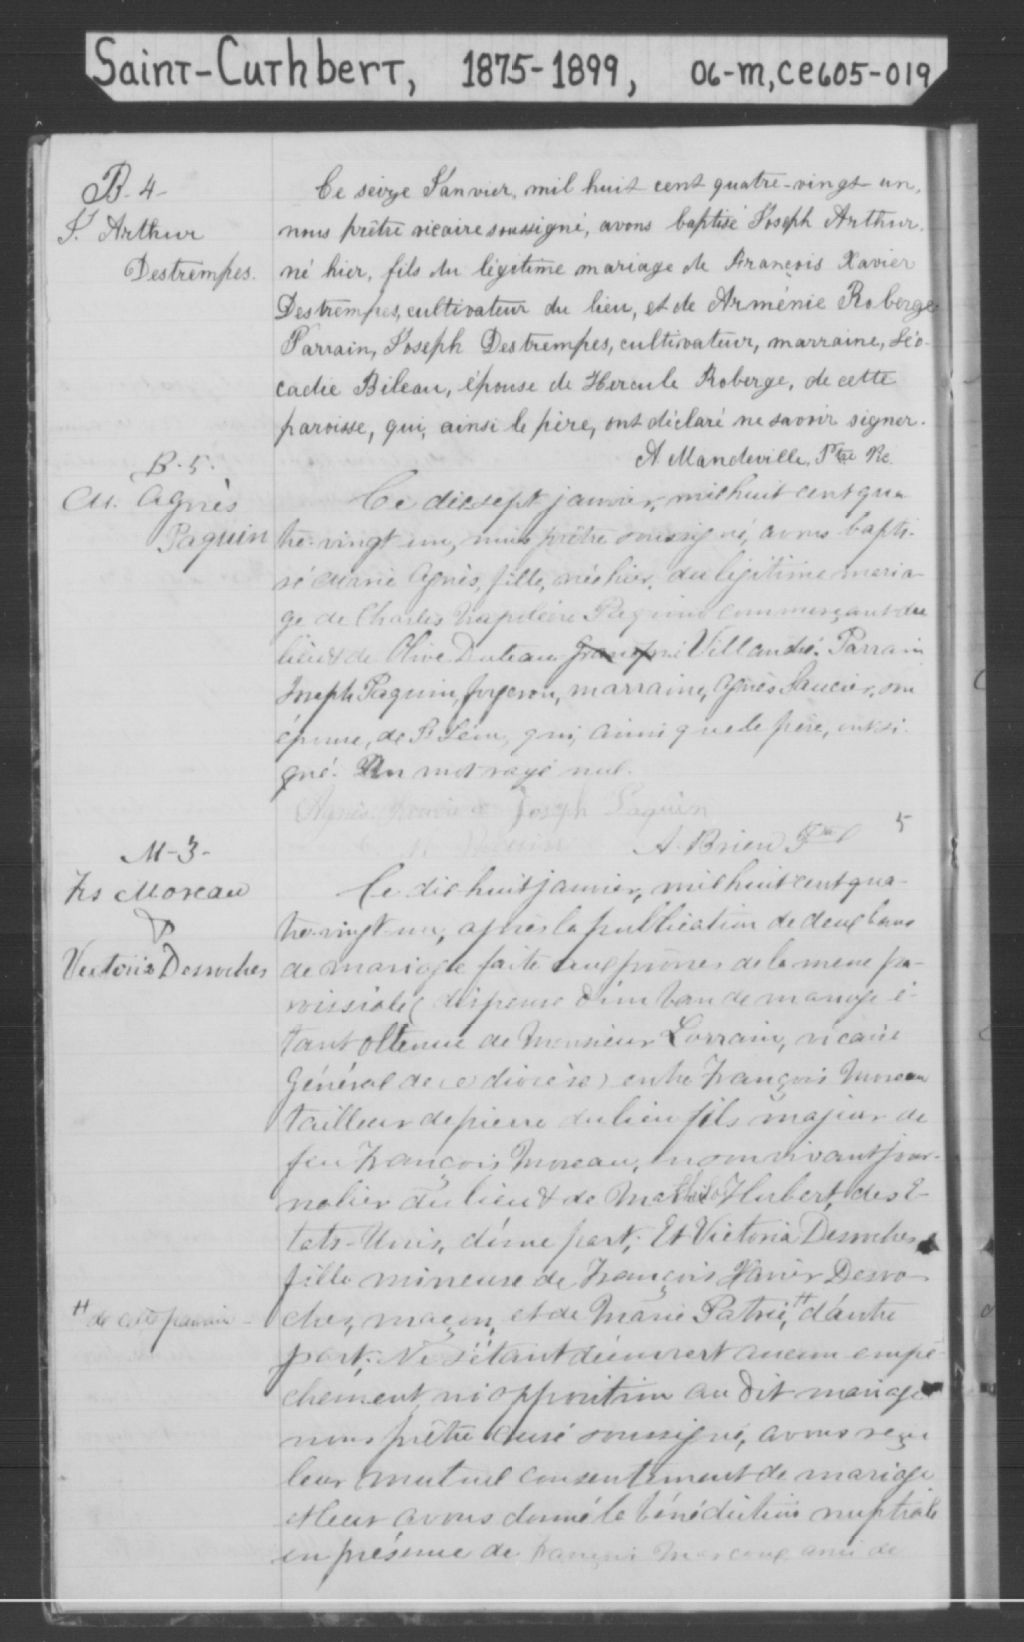 Saint-Cuthbert, 1875-1899, 06-M, CE605-019
B-4-
J. Arthur
Destrempes.
Ce seize Janvier, mil huit cent quatre-vingt un,
nous prêtre vicaire soussigné, avons baptisé Joseph Arthur,
né hier, fils du légitime mariage de François Xavier
Destrempes, cultivateur du lieu, et de Arménie Roberge
Parrain, Joseph Destrempes, cultivateur, marraine, Léo-
cadie Bileau, épouse de Hercule Roberge, de cette
paroisse, qui, ainsi le père, ont déclaré ne savoir signer.
A Mandeville, Ptre Vic.
B-5-
M. Agnès
Paquin
Ce dix sept janvier, mil huit cent qua
tre-vingt un, nous prêtre soussigné, avons bapti-
sé Marie Agnès, fille, née hier, du légitime maria-
ge de Charles Napoléon Paquin commerçant du
lieu & de Olive Duteau Villandré. Parrain
Joseph Paquin, forgeron, marraine, Agnès Saucier, son
épouse, de St Léon, qui, ainsi que le père, ont si-
gné. Un mot rayé nul.
Agnès Joseph Paquin
A. Brien Ptre
5
M-3-
Frs Moreau
&
Victoria Desroches
Ce dix huit janvier, mil huit cent qua-
tre-vingt-un, après la publication de deux bans
de mariage faite aux prônes de la messe pa-
roissiale (dispense d'un ban de mariage é-
tant obtenue de Monsieur Lorrain, vicaire
Général de ce diocèse) entre François Moreau
tailleur de pierre du lieu fils majeur de
feu François Moreau, en son vivant jour-
nalier du lieu & de Mathilde Hubert, des E-
tats-Unis, d'une part; Et Victoria Desroches
fille mineure de François Xavier Desro-
ches, maçon, et de Marie Patrie, # d'autre
# de cette paroisse -
part; Ne s'étant découvert aucun empê-
chement ni opposition au dit mariage
nous prêtre curé soussigné, avons reçu
leur mutuel consentement de mariage
et leur avons donné la bénédiction nuptiale
en présence de François ami de